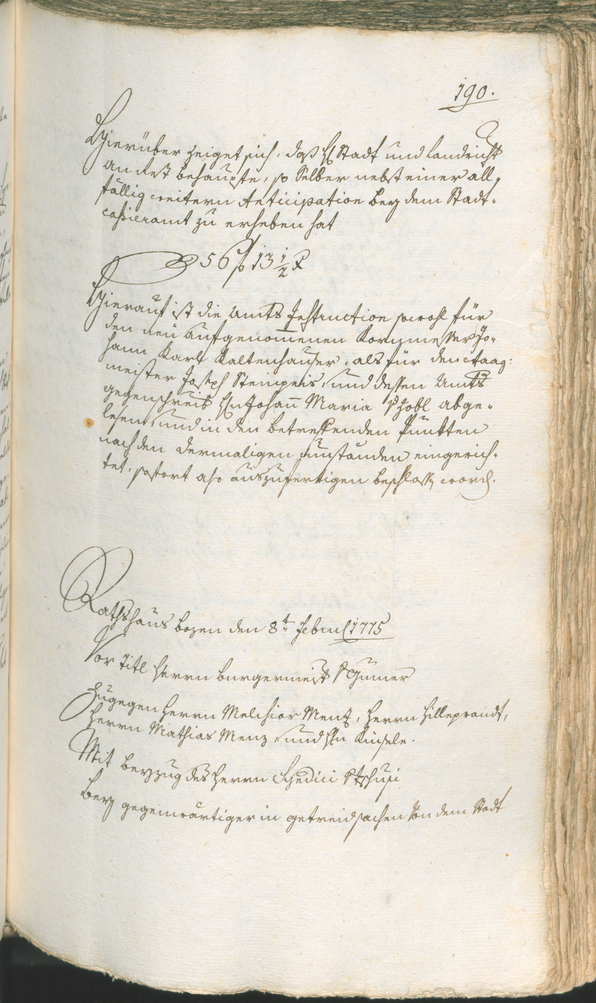 190.
Hierüber zeiget sich, daß H Stadt und Landricht
an der behaupte, so selber nebst einer all¬
fällig weitern Anticipation bey dem Stadt¬
cassieramt zu erheben hat
56 f 13 1/2 x
Hierauf ist die Amts Instruction sowohl für
den neu aufgenomenen Kornmesser Jo¬
hann Karl Kaltenhauser, als für den Waag¬
meister Joseph Stemperis, und dessen Amts
gegenschreib H Johann Maria Schobl abge¬
lesen, und in den betrefenden Punkten
nach den dermaligen Umständen eingerich¬
tet, sofort also auszufertigen beschlossen word.
Rathshaus bozen den 8t Febru 1775
Vor Titl Herrn burgermeist Gumer
Zugegen Herrn Melchior Menz, Herrn Hilleprandt,
Herrn Mathias Menz, und Hn Kinsele.
Mit beyzug des Herrn Syndici
bey gegenwärtiger in getreid sachen von dem Stadt